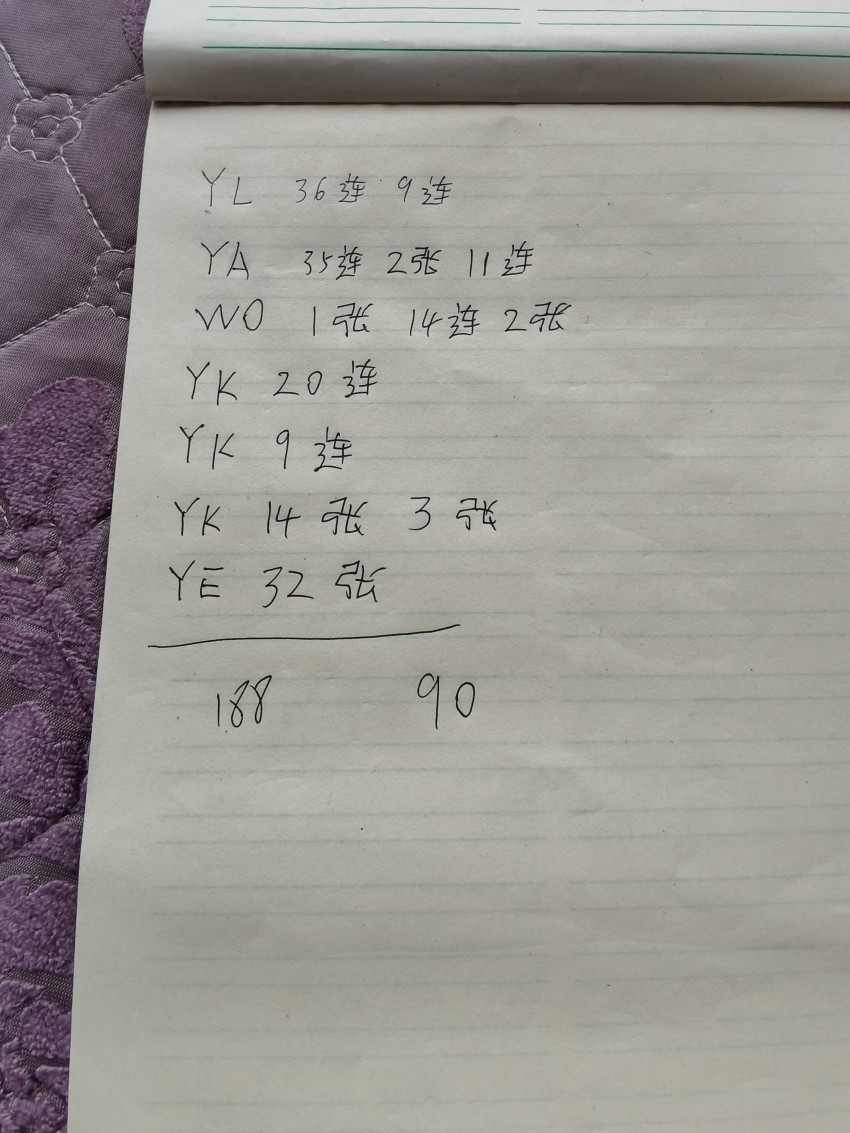 YL 36连 9连
YA 35连 2张 11连
WO 1张 14连 2张
YK 20连
YK 9连
YK 14张 3张
YE 32张
188 90